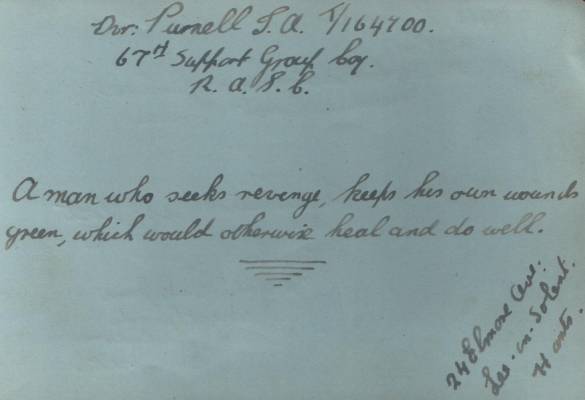 Dvr. Purnell S. A. T/164700.
67TH Support Group Coy.
R. A. S. C.
A man who seeks revenge, keeps his own wounds
green, which would otherwise heal and do well.
24 Elmore Ave.
Lee-in-Solent.
Hants.